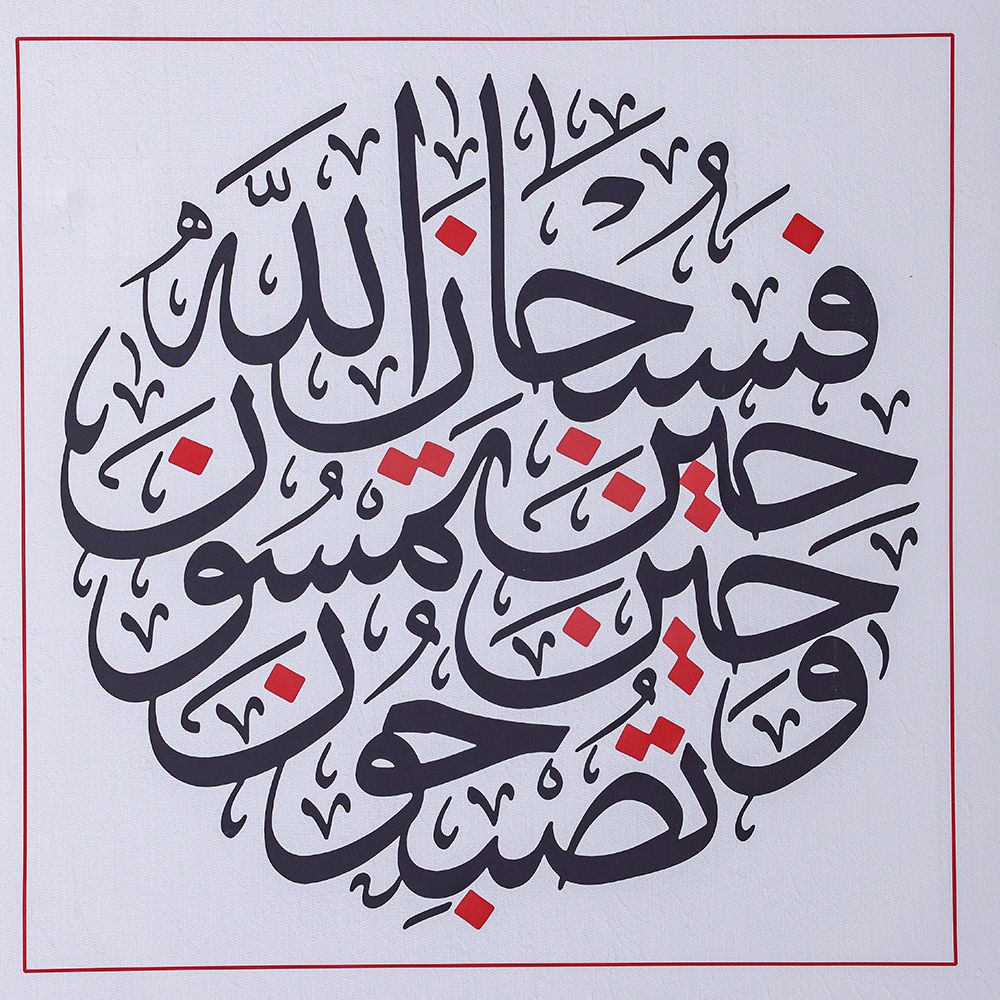 فَسُبْحَانَ اللَّهِ
حِينَ تُمْسُونَ
وَحِينَ تُصْبِحُونَ